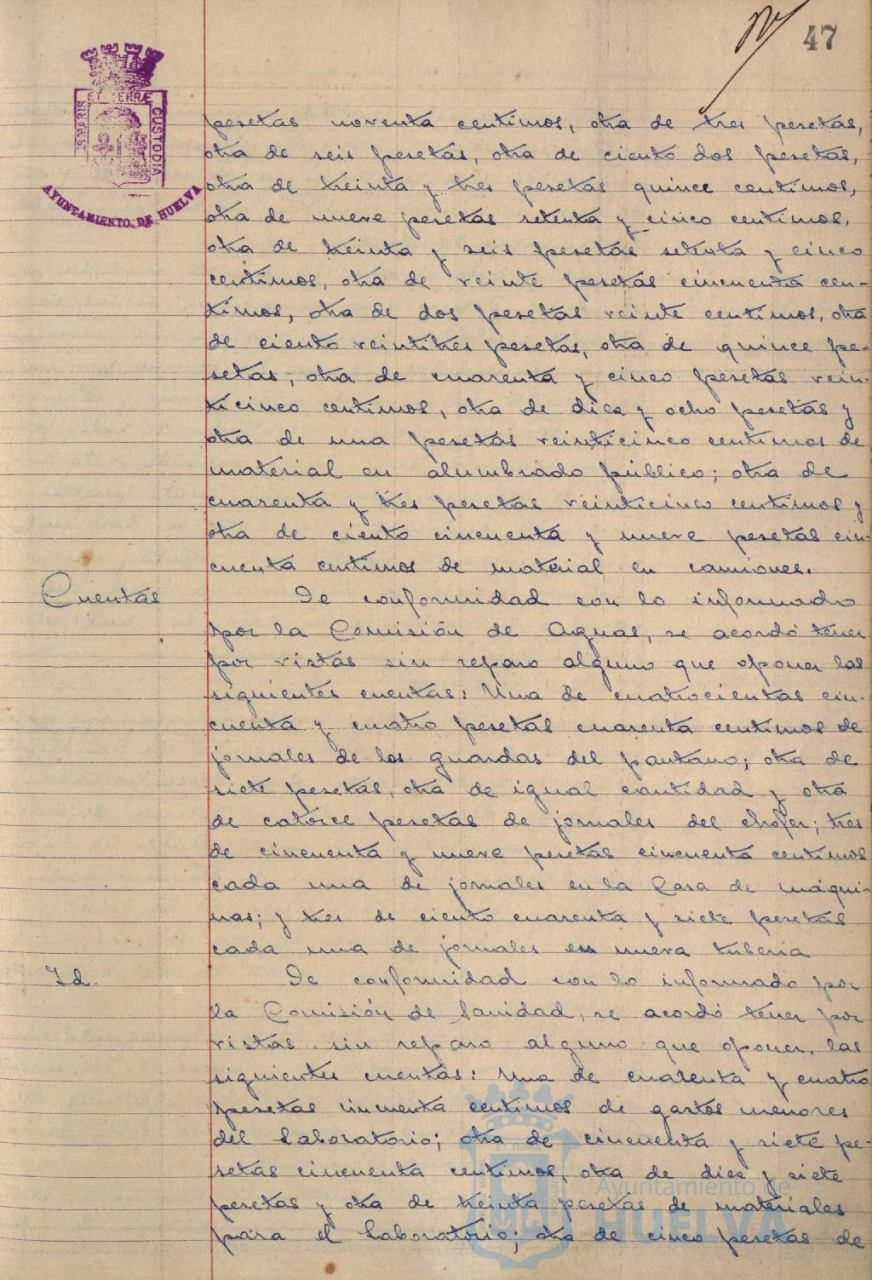 47
S MARIS ET TERRÆ CUSTODIA
AYUNTAMIENTO DE HUELVA
pesetas noventa centimos, otra de tres pesetas,
otra de seis pesetas, otra de ciento dos pesetas,
otra de treinta y tres pesetas quince centimos,
otra de nueve pesetas setenta y cinco centimos,
otra de treinta y seis pesetas setenta y cinco
centimos, otra de veinte pesetas cincuenta cen-
timos, otra de dos pesetas veinte centimos, otra
de ciento veintitres pesetas, otra de quince pe-
setas, otra de cuarenta y cinco pesetas vein-
ticinco centimos, otra de diez y ocho pesetas y
otra de una pesetas veinticinco centimos de
material en alumbrado público; otra de
cuarenta y tres pesetas veinticinco centimos y
otra de ciento cincuenta y nueve pesetas cin-
cuenta centimos de material en camiones.
Cuentas
De conformidad con lo informado
por la Comisión de Aguas, se acordó tener
por vistas sin reparo alguno que oponer las
siguientes cuentas: Una de cuatrocientas cin-
cuenta y cuatro pesetas cuarenta centimos de
jornales de los guardas del pantano; otra de
siete pesetas, otra de igual cantidad y otra
de catorce pesetas de jornales del chofer; tres
de cincuenta y nueve pesetas cincuenta centimos
cada una de jornales en la Casa de máqui-
nas; y tres de ciento cuarenta y siete pesetas
cada una de jornales en nueva tuberia
Id.
De conformidad con lo informado por
la Comisión de Sanidad, se acordó tener por
vistas sin reparo alguno que oponer, las
siguientes cuentas: Una de cuarenta y cuatro
pesetas cincuenta centimos de gastos menores
del Laboratorio; otra de cincuenta y siete pe-
setas cincuenta centimos, otra de diez y siete
pesetas y otra de treinta pesetas de materiales
para el Laboratorio; otra de cinco pesetas de
Ayuntamiento de
HUELVA